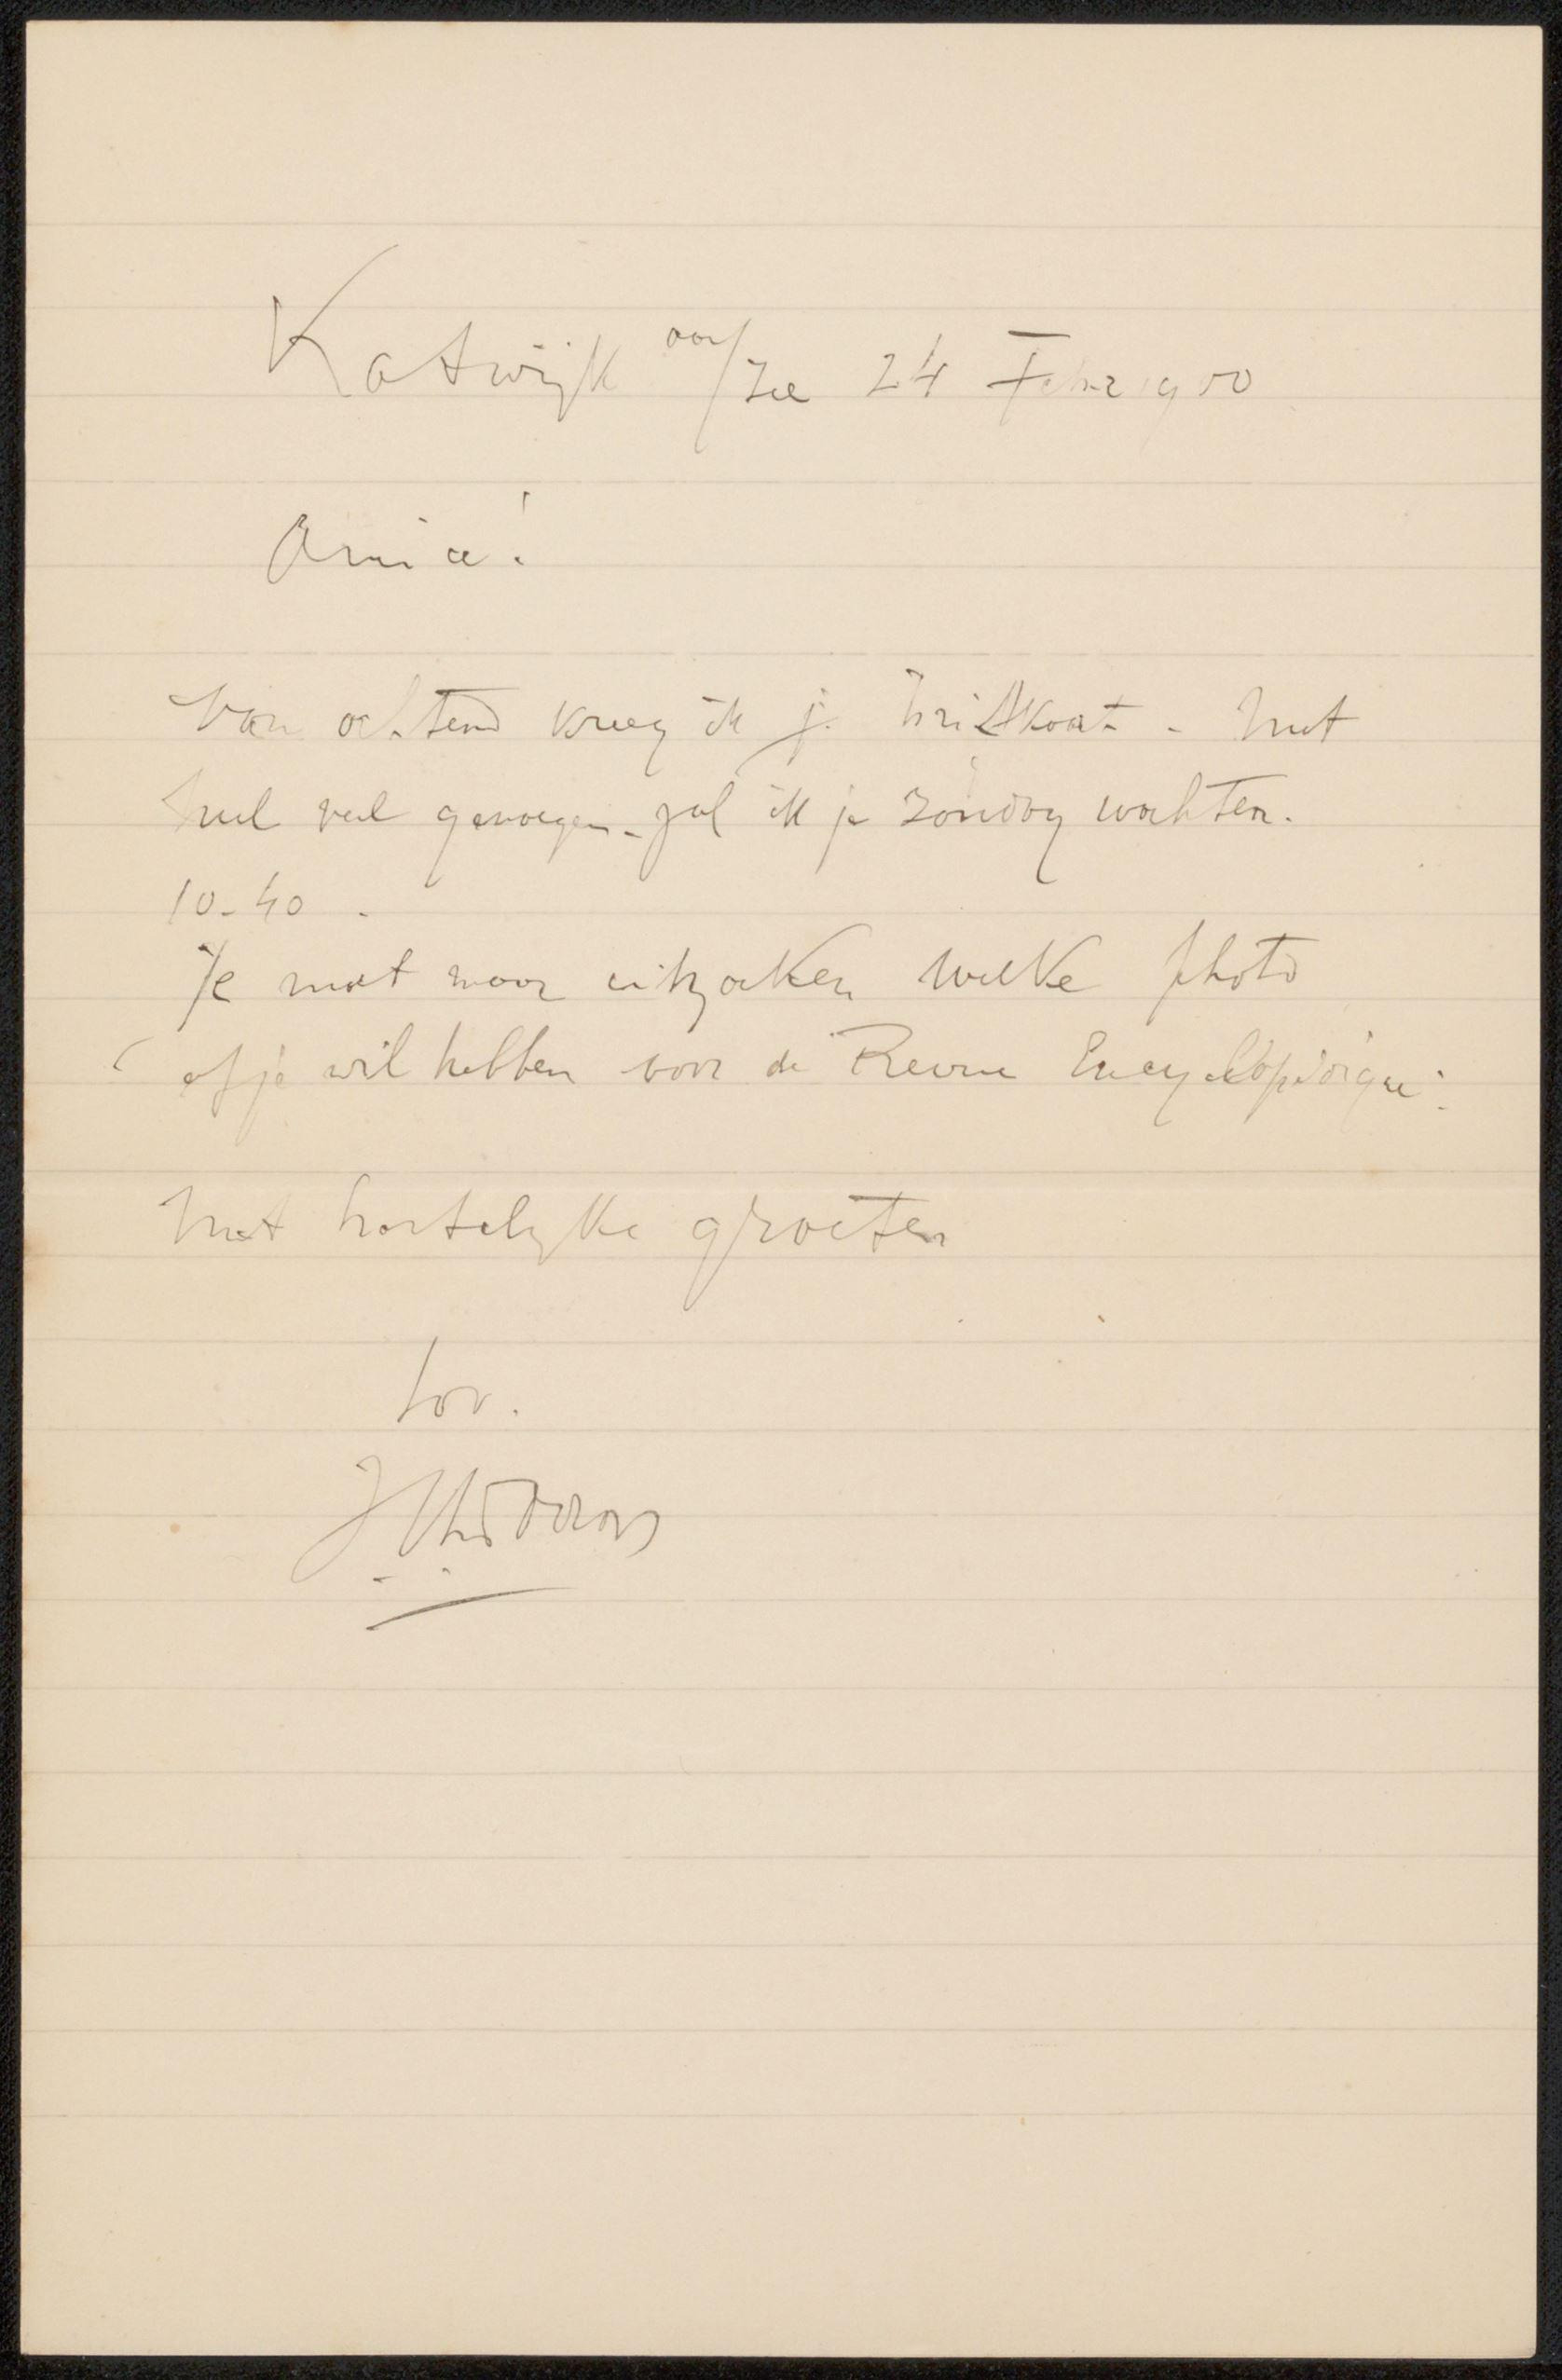 Katwijk aan/Zee 24 Febr 1900
Amice!
Van ochtend kreeg ik je briefkaart - met
heel veel genoegen - zal ik je Zondag wachten.
10-40 -
Je moet maar uitzoeken welke photo
of je wil hebben voor de Revue Encyclopédique.
Met hartelyke groeten
tov.
JThToorop